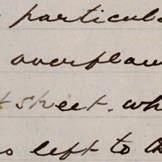 particula
overflow
t street. wh
s left to th